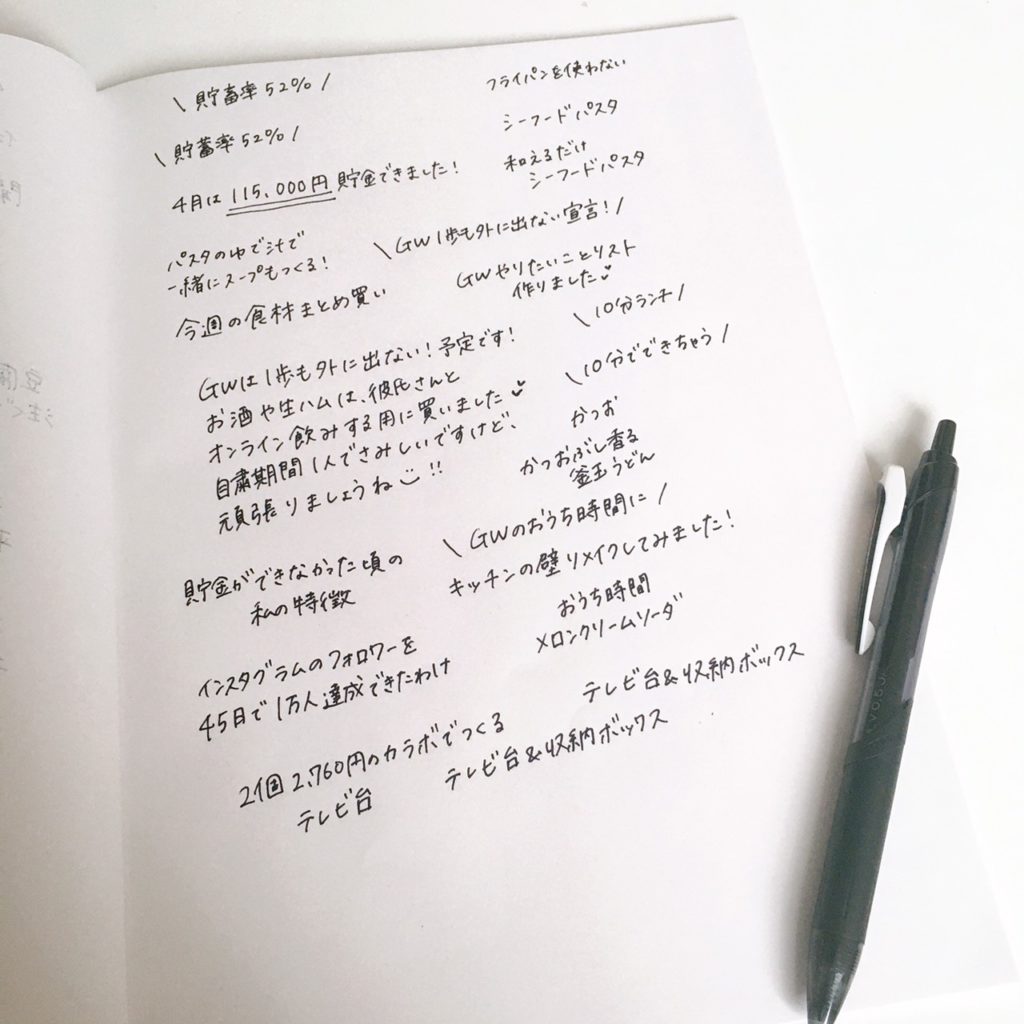 \ 貯蓄率52% /
\ 貯蓄率52% /
4月は 115,000円 貯金できました!
パスタのゆで汁で
一緒にスープもつくる!
今週の食材まとめ買い
GWは1歩も外に出ない!予定です!
お酒や生ハムは、彼氏さんと
オンライン飲みする用に買いました
自粛期間1人でさみしいですけど、
頑張りましょうね!!
貯金ができなかった頃の
私の特徴
インスタグラムのフォロワーを
45日で1万人達成できたわけ
2個2,760円のカラボでつくる
テレビ台
フライパンを使わない
シーフードパスタ
和えるだけ
シーフードパスタ
\ GW1歩も外に出ない宣言! /
GWやりたいことリスト
作りました
\ 10分ランチ /
\ 10分でできちゃう /
かつお
かつおぶし香る
釜玉うどん
\ GWのおうち時間に /
キッチンの壁リメイクしてみました!
おうち時間
メロンクリームソーダ
テレビ台&収納ボックス
テレビ台&収納ボックス